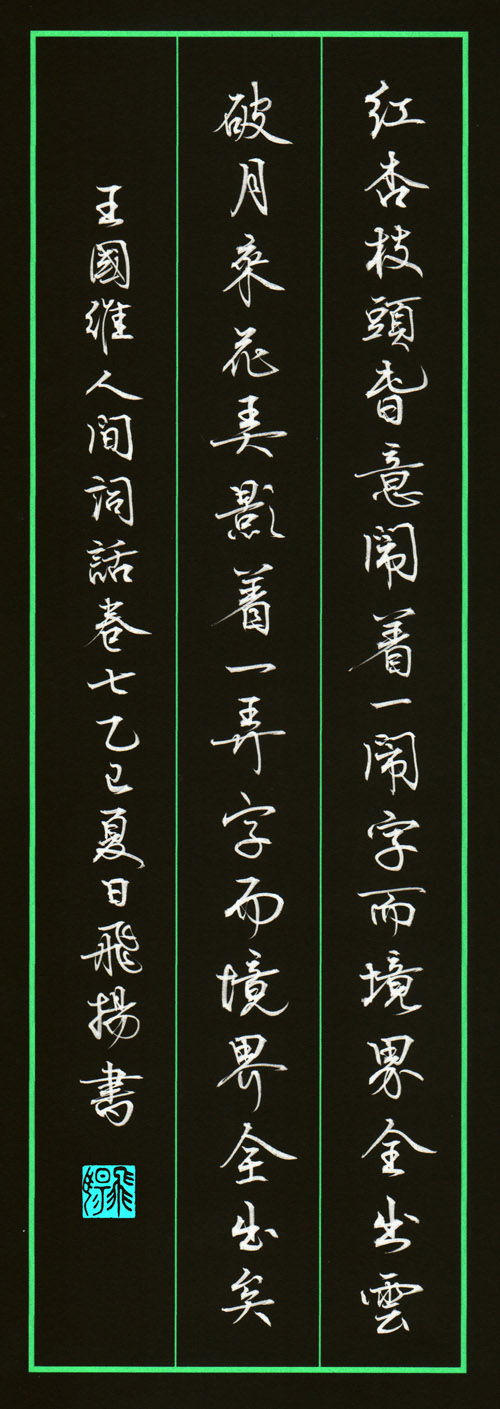 紅杏枝頭旾意閙着一閙字而境界全出雲
破月來花弄影着一弄字而境界全出矣
王國維人間詞話卷七乙巳夏日飛揚書
飛揚